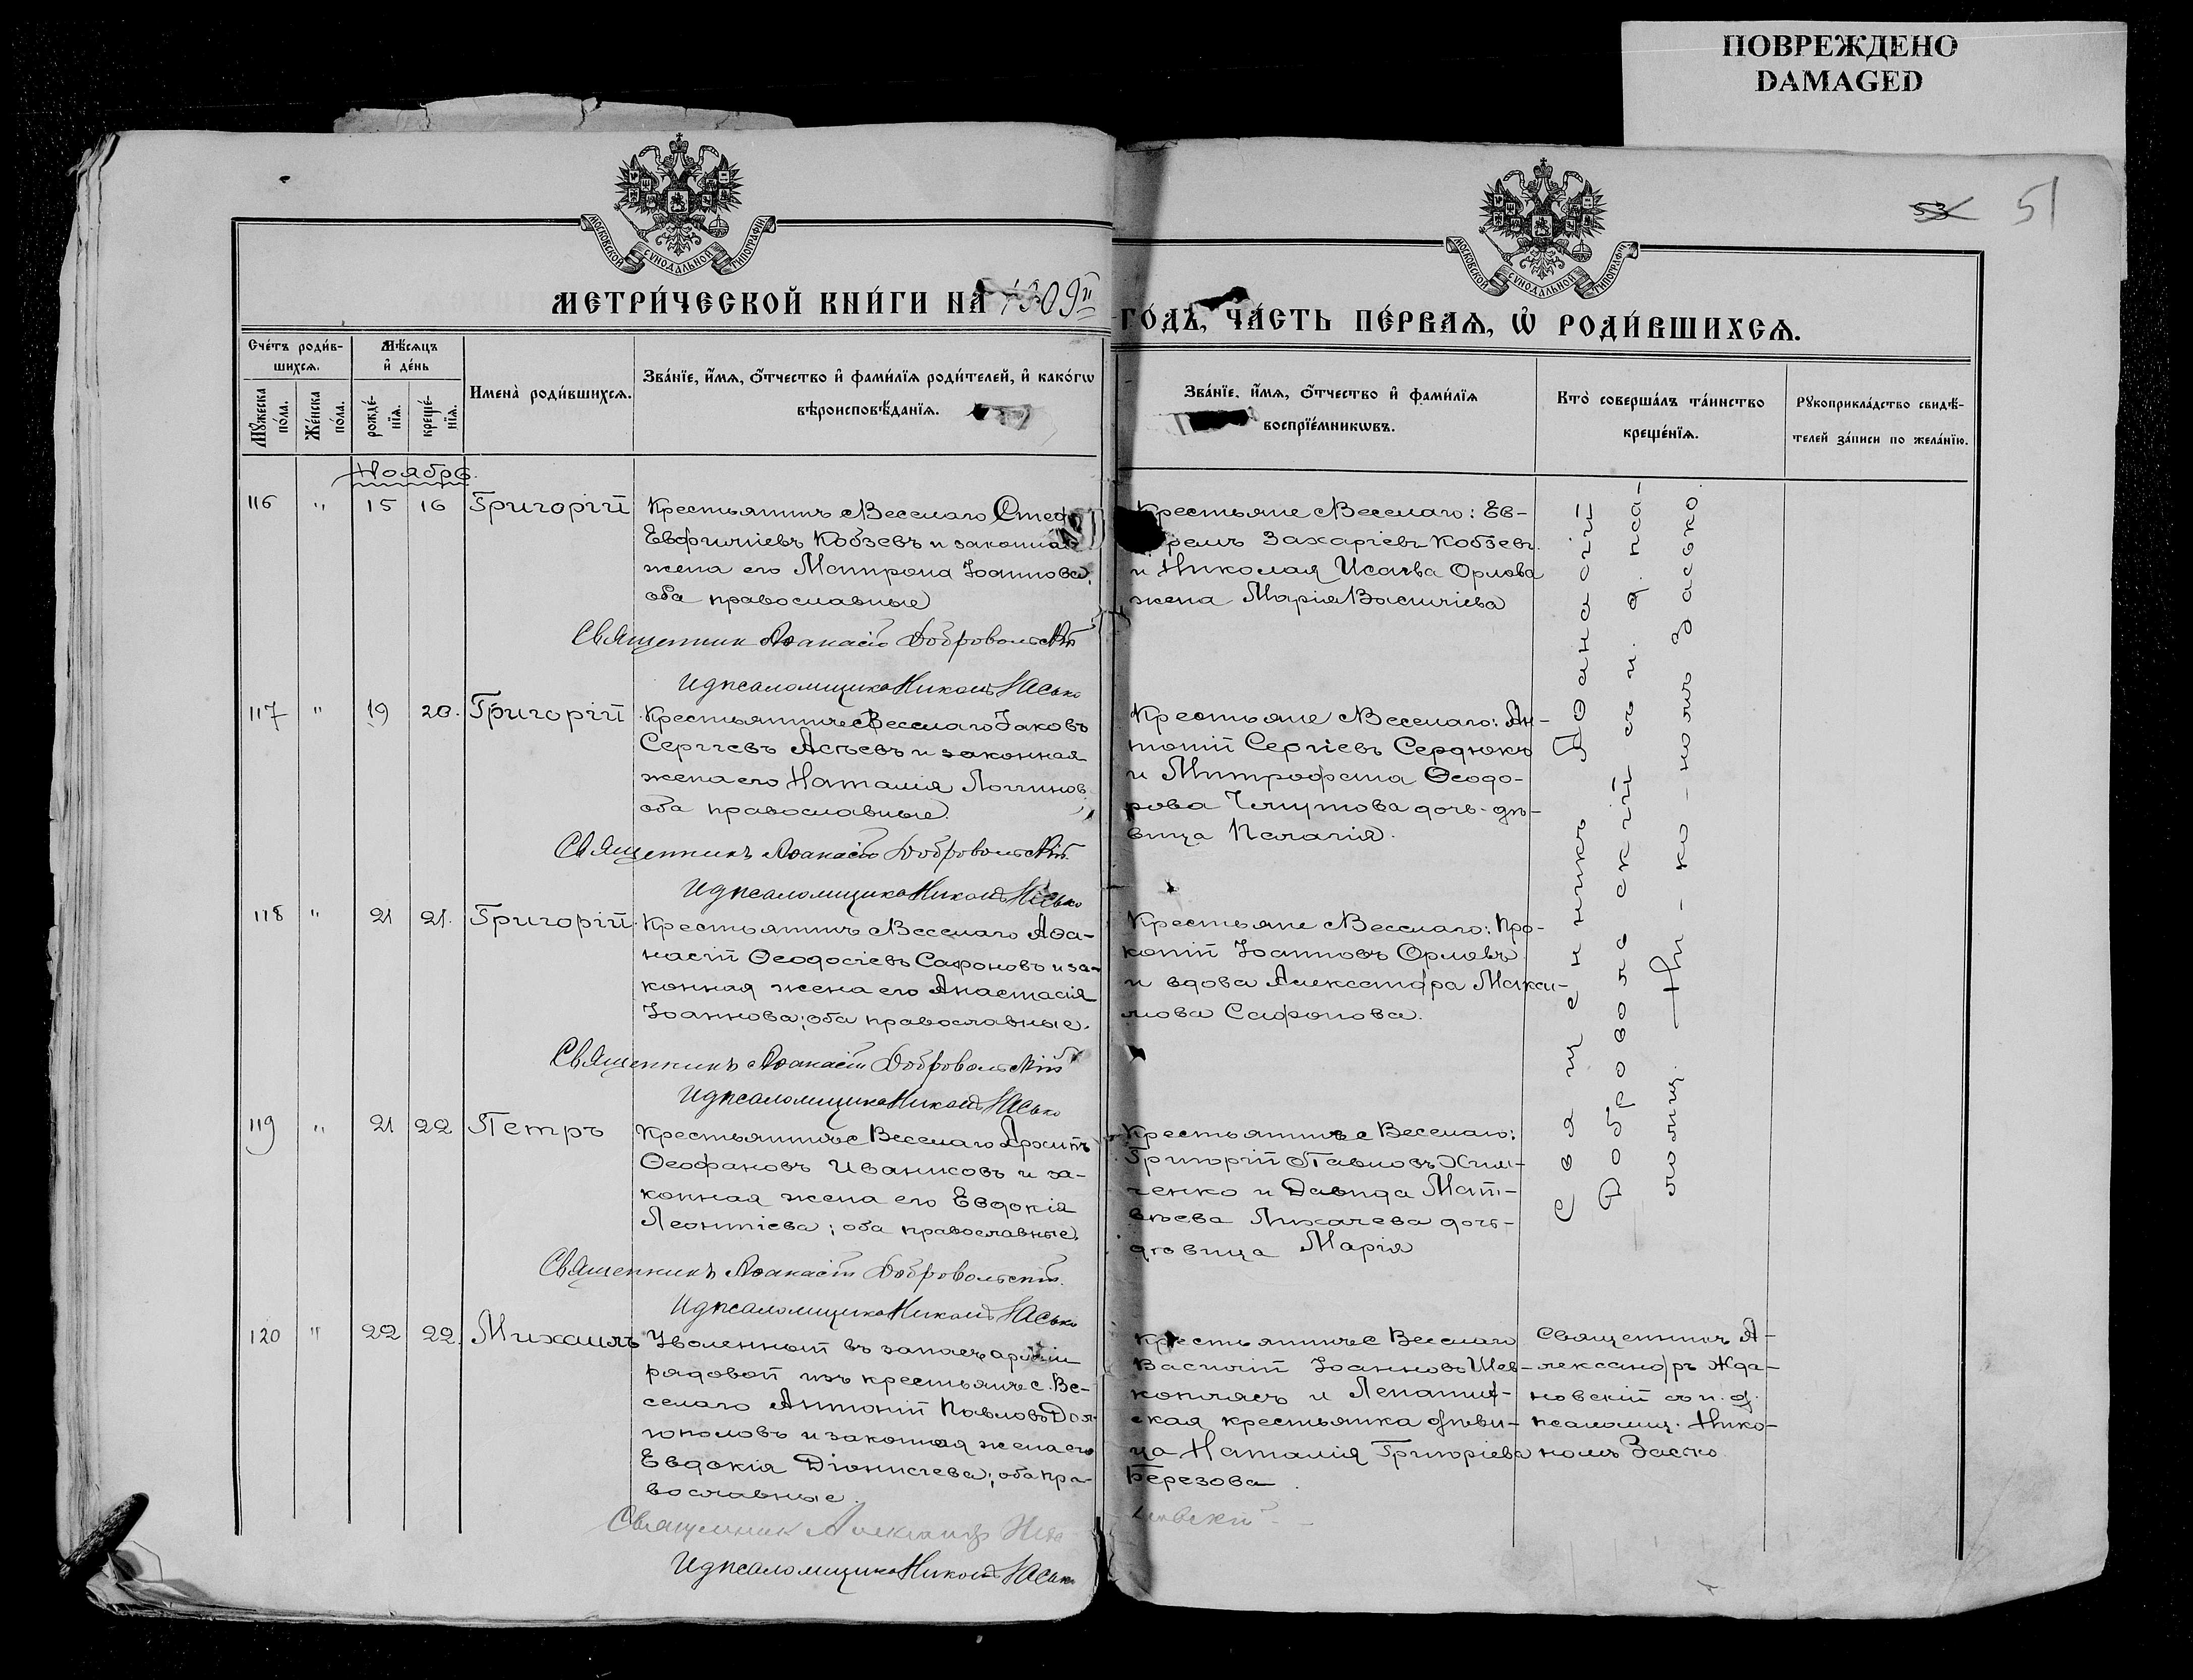 ПОВРЕЖДЕНО
DAMAGED
53 51
МОСКОВСКОЙ СѴНОДАЛЬНОЙ ТИПОГРАФІИ
МОСКОВСКОЙ СѴНОДАЛЬНОЙ ТИПОГРАФІИ
МЕТРИ́ЧЕСКОЙ КНИ́ГИ НА 1909й
ГО́ДЪ, ЧА́СТЬ ПЕ́РВАѦ, Ѡ҆ РОДИ́ВШИХСѦ.
Сче́тъ роди́в-
шихсѧ.
Мѣ́сѧцъ
и҆ де́нь
Мꙋ́жеска по́ла.
Же́нска по́ла.
рожде́-
нїѧ.
креще́-
нїѧ.
Имена̀ роди́вшихсѧ.
Зва́нїе, и҆́мѧ, ѻ҆́тчество и҆ фами́лїѧ роди́телей, и҆ како́гѡ
вѣроисповѣ́данїѧ.
Зва́нїе, и҆́мѧ, ѻ҆́тчество и҆ фами́лїѧ
воспрїе́мникѡвъ.
Кто̀ соверша́лъ та́инство
креще́нїѧ.
Рꙋкоприкла́дство свидѣ́-
телей за́писи по жела́нїю.
Ноябрь.
116 " 15 16 Григорій
Крестьянинъ с Веселаго
Евфиміевъ Кобзевъ и законная
жена его Матрона Іоаннова;
оба православные
Священник Аѳанасій Добровольскій
И д псаломщика Никонъ Засько
Крестьяне с Веселаго: Ев-
фремъ Захаріевъ Кобзевъ
и Николая Исаева Орлова
жена Марія Васильева
117 " 19 20. Григорій
Крестьянинъ с Веселаго Іаковъ
Сергіевъ Асѣевъ и законная
жена его Наталія Логгинов
оба православные.
Священникъ Аѳанасій Добровольскій
И д псаломщика Никонъ Засько
Крестьяне с Веселаго: Ан-
тоній Сергіевъ Сердюкъ
и Митрофана Ѳеодо-
рова дочь-дѣ-
вица Пелагія.
118 " 21 21. Григорій
Крестьянинъ с Веселаго Аѳа-
насій Ѳеодосіевъ Сафоновъ и за-
конная жена его Анастасія
Іоаннова; оба православные.
Священникъ Аѳанасій Добровольскій
И д псаломщика Никонъ Засько
Крестьяне с Веселаго: Про-
копій Іоанновъ Орловъ
и вдова Александра Макси-
мова Сафонова.
119 " 21 22 Петръ
Крестьянинъ с Веселаго
Ѳеофановъ Иваниковъ и за-
конная жена его Евдокія
Леонтіева; оба православные.
Священникъ Аѳанасій Добровольскій.
И д псаломщика Никонъ Засько
Крестьянинъ с Веселаго:
Григорій Павловъ Хим-
ченко и Давида Мат-
вѣева Лихачева дочь-
дѣвица Марія
Священникъ Аѳанасій
Добровольскій съ и. д. пса-
ломщ. Ни-ко-номъ Засько.
120 " 22 22. Михаилъ
Уволенный въ запасъ арміи
рядовой изъ крестьянъ с. Ве-
селаго Антоній Павловъ Дол-
гополовъ и законная жена его
Евдокія Діонисіева; оба пра-
вославные.
Крестьянинъ с Веселаго
Василій Іоанновъ Шев-
коплясъ и
ская крестьянка дѣви-
ца Наталія Григоріева
Березова.
Священникъ А-
лександръ Жда-
новскій съ и. д.
псаломщ. Нико-
номъ Засько
Священник Александр Жда
новскій
И д псаломщика Никонъ Засько